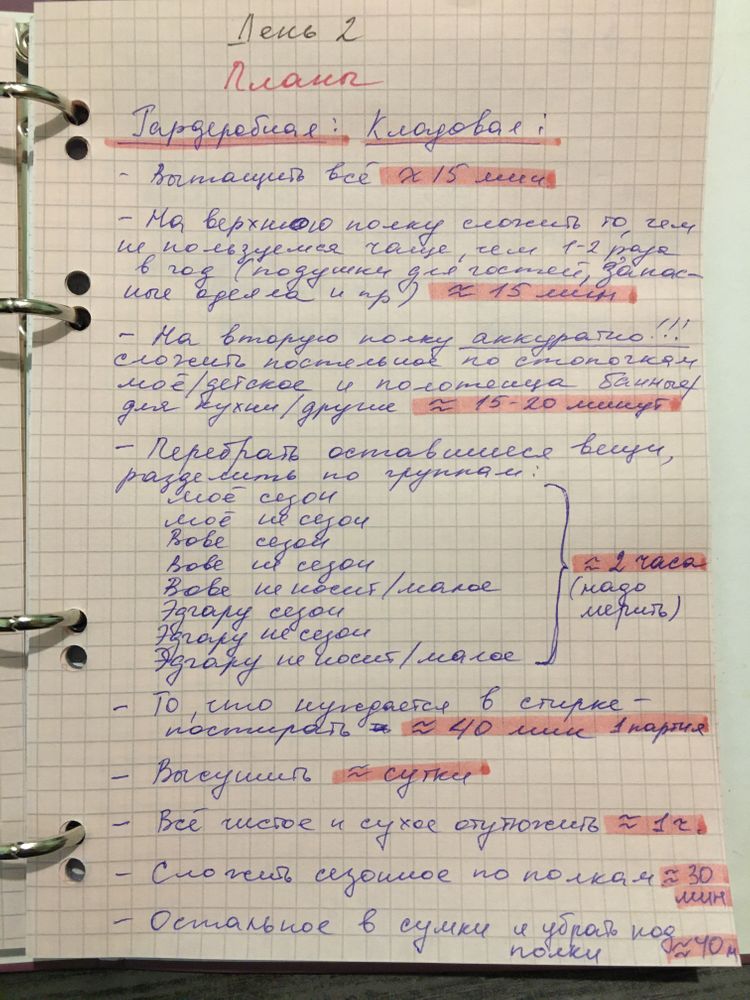 День 2
Планы
Гардеробная: Кладовая:
- Вытащить всё ≈ 15 мин
- На верхнюю полку сложить то, чем
не пользуемся чаще, чем 1-2 раза
в год (подушки для гостей, запас-
ные одеяла и пр) ≈ 15 мин
- На вторую полку аккуратно!!!
сложить постельное по стопочкам
моё/детское и полотенца банные/
для кухни/другие ≈ 15-20 минут
- Перебрать оставшиеся вещи,
разделить по группам:
моё сезон
моё не сезон
Вове сезон
Вове не сезон
Вове не носит/малое
Эдгару сезон
Эдгару не сезон
Эдгару не носит/малое
≈ 2 часа
(надо
мерить)
- То, что нуждается в стирке -
постирать ≈ 40 мин 1 партия
- Высушить ≈ сутки
- Всё чистое и сухое отутюжить ≈ 1 ч.
- Сложить сезонное по полкам ≈ 30
мин
- Остальное в сумки и убрать под
полки ≈ 40 м